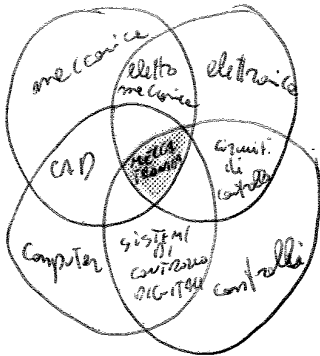 meccanica
elettronica
eletto
meccanica
CAD
MECCA
TRONICA
circuiti
di
controllo
computer
SISTEMI
DI
CONTROLLO
DIGITALI
controlli